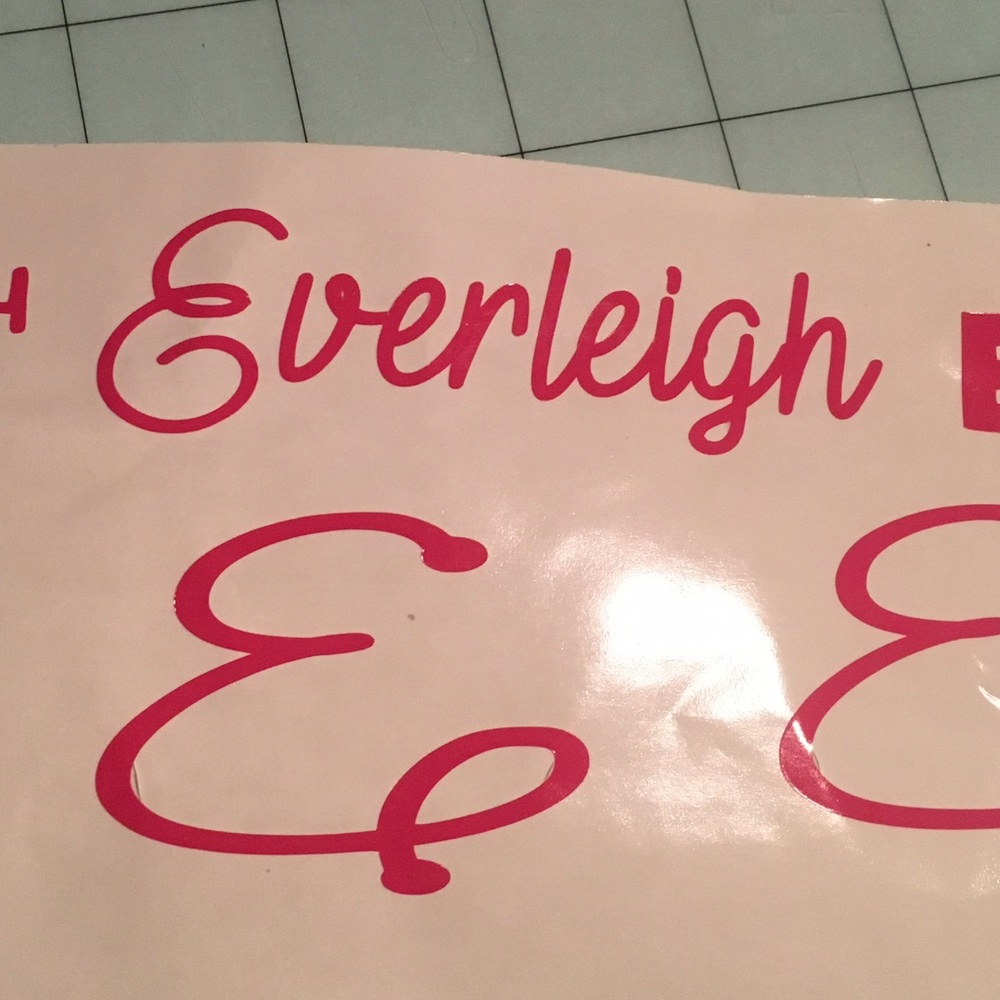 Everleigh
E E